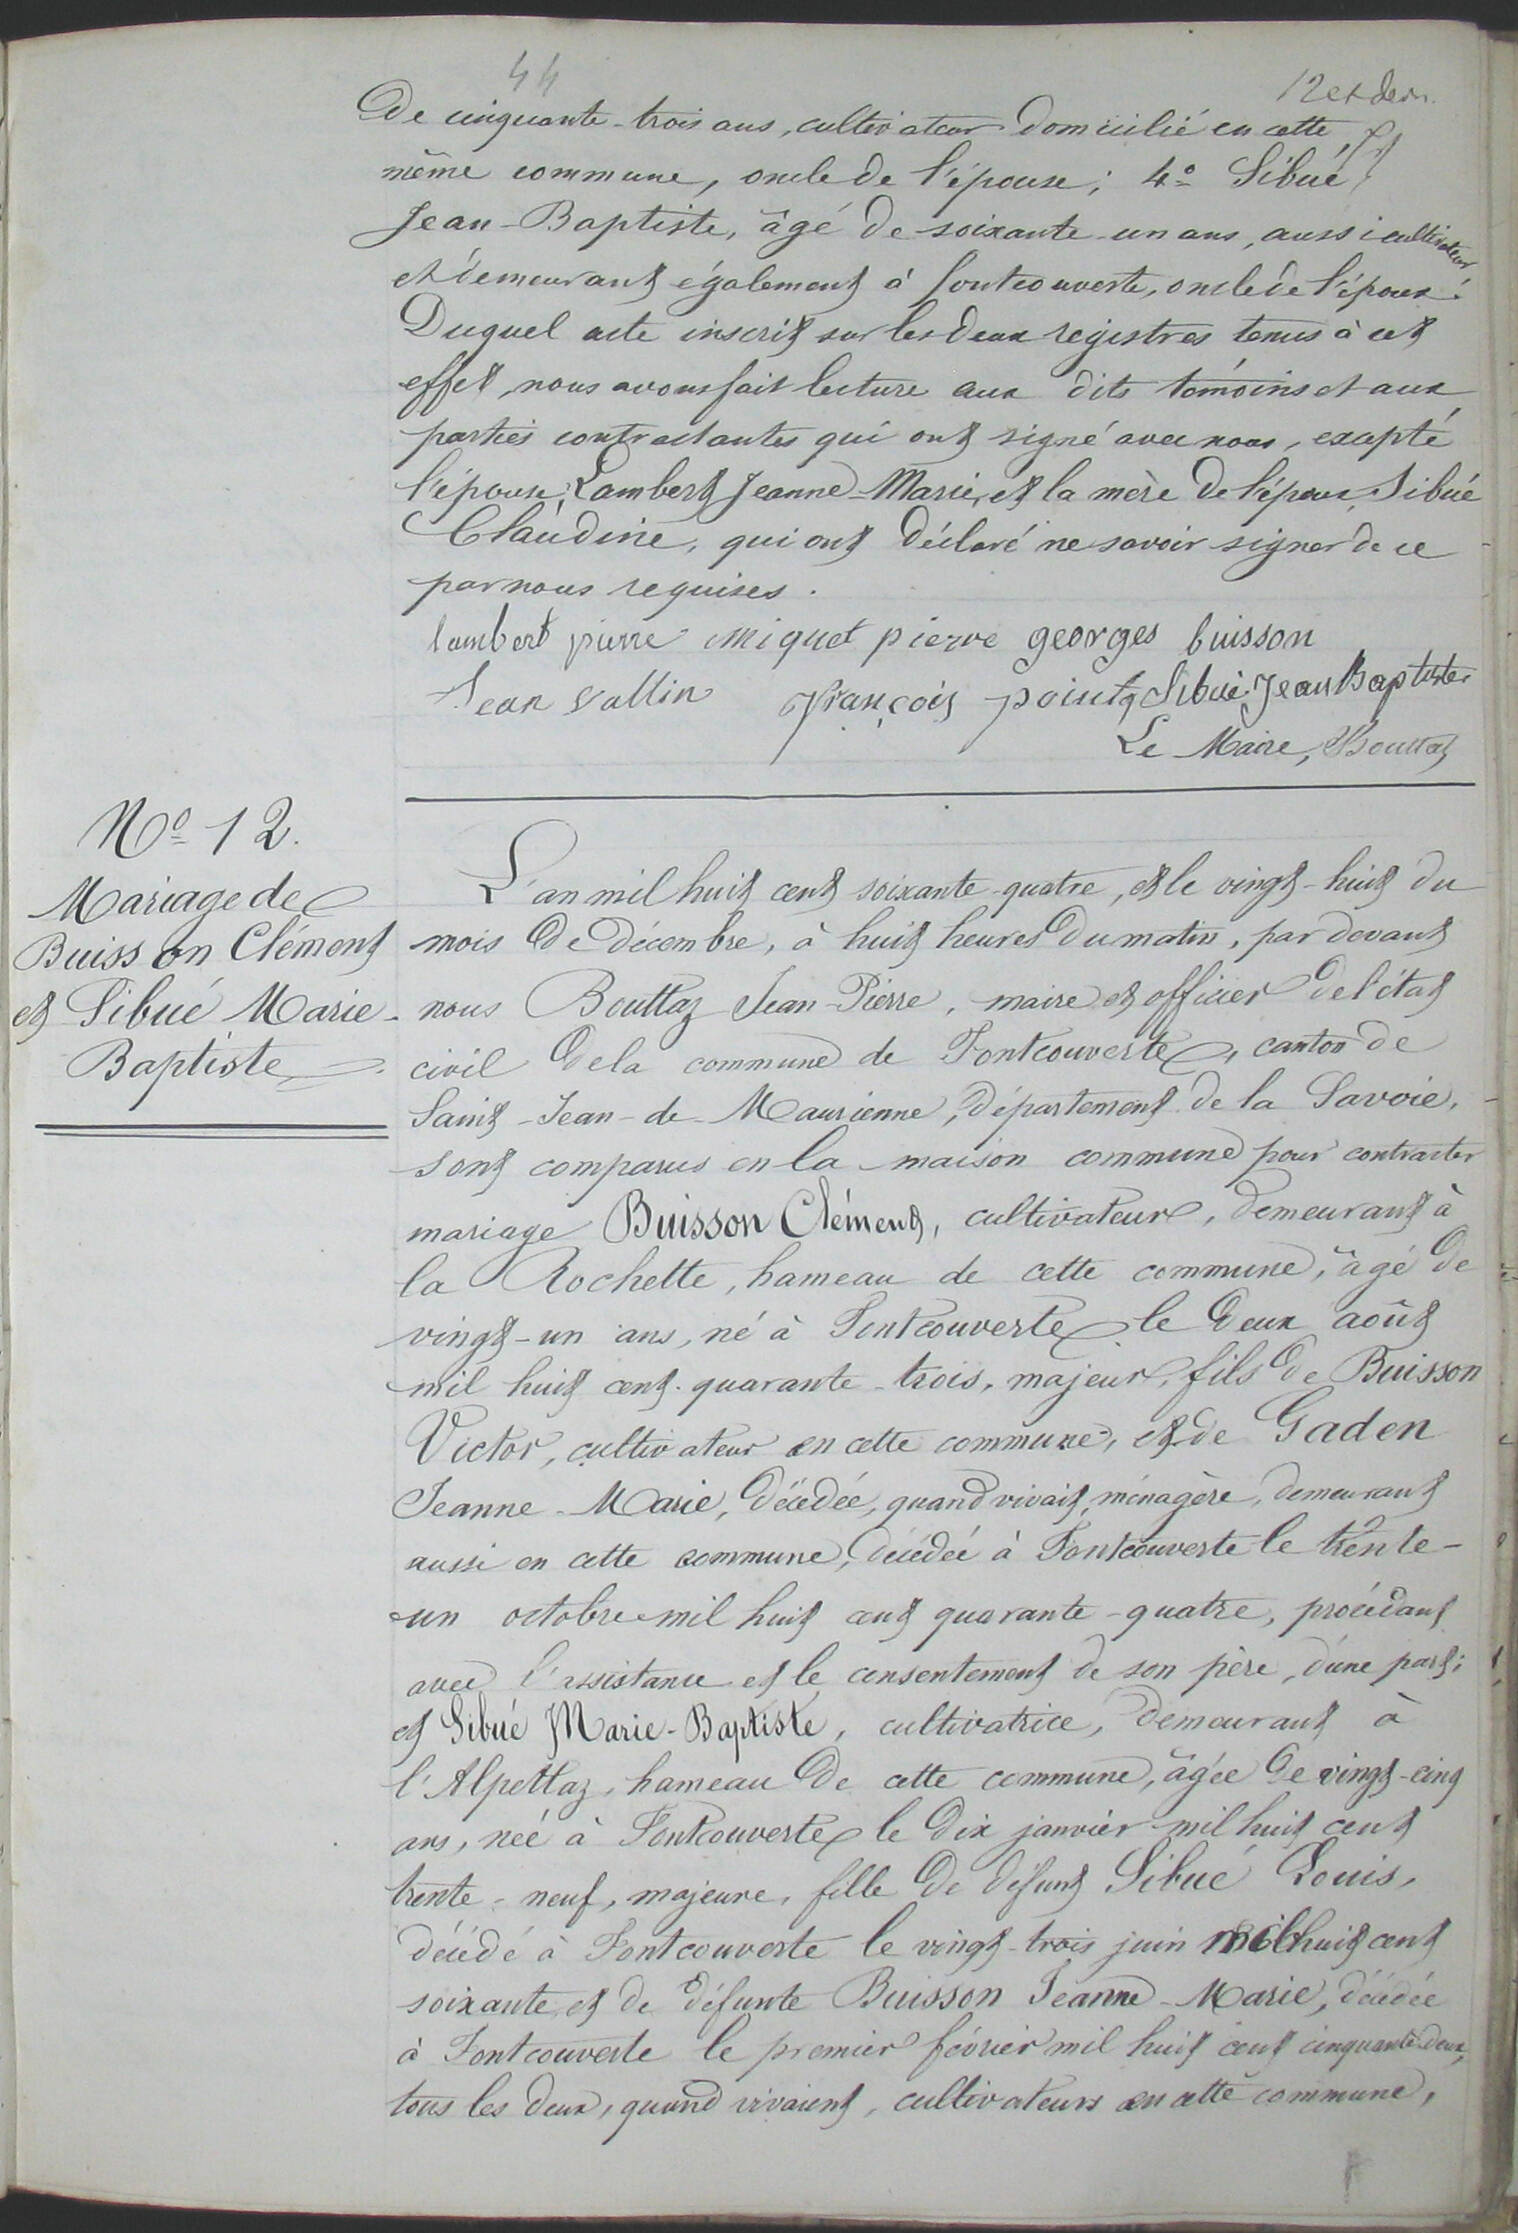 44
12 et der.
De cinquante-trois ans, cultivateur domicilié en cette
même commune, oncle de l'épouse; 4º Sibué
Jean-Baptiste, âgé de soixante-un ans, aussi cultivateur
et demeurant également à Fontcouverte, oncle de l'époux.
Duquel acte inscrit sur les deux registres tenus à cet
effet, nous avons fait lecture aux dits témoins et aux
parties contractantes qui ont signé avec nous, excepté
l'épouse, Lambert Jeanne-Marie, et la mère de l'époux, Sibué
Claudine, qui ont déclaré ne savoir signer de ce
par nous requises.
lambert pierre miquet pierre georges buisson
Jean Vallin françois pointet Sibué Jean Baptiste
Le Maire, Bouttaz
Nº 12.
Mariage de
Buisson Clément
et Sibué Marie-
Baptiste
L'an mil huit cent soixante-quatre, et le vingt-huit du
mois de décembre, à huit heures du matin, par devant
nous Bouttaz Jean-Pierre, maire et officier de l'état
civil de la commune de Fontcouverte, canton de
Saint-Jean-de-Maurienne, département de la Savoie,
sont comparus en la maison commune pour contracter
mariage Buisson Clément, cultivateur, demeurant à
la Rochette, hameau de cette commune, âgé de
vingt-un ans, né à Fontcouverte le deux août
mil huit cent quarante-trois, majeur, fils de Buisson
Victor, cultivateur en cette commune, et de Gaden
Jeanne-Marie, décédée, quand vivait, ménagère, demeurant
aussi en cette commune, décédée à Fontcouverte le trente-
un octobre mil huit cent quarante-quatre, procédant
avec l'assistance et le consentement de son père, d'une part;
et Sibué Marie-Baptiste, cultivatrice, demeurant à
l'Alpettaz, hameau de cette commune, âgée de vingt-cinq
ans, née à Fontcouverte le dix janvier mil huit cent
trente-neuf, majeure, fille de défunt Sibué Louis,
décédé à Fontcouverte le vingt-trois juin mil huit cent
soixante, et de défunte Buisson Jeanne-Marie, décédée
à Fontcouverte le premier février mil huit cent cinquante-deux,
tous les deux, quand vivaient, cultivateurs en cette commune,